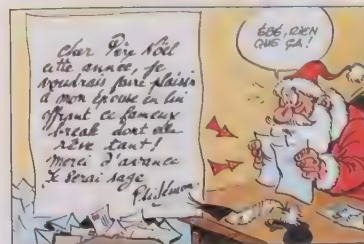 Cher Père Noël
cette année, je
voudrais faire plaisir
à mon épouse en lui
offrant ce fameux
break dont elle
rêve tant!
Merci d'avance
Je serai sage
ÉBÉ, RIEN
QUE ÇA!